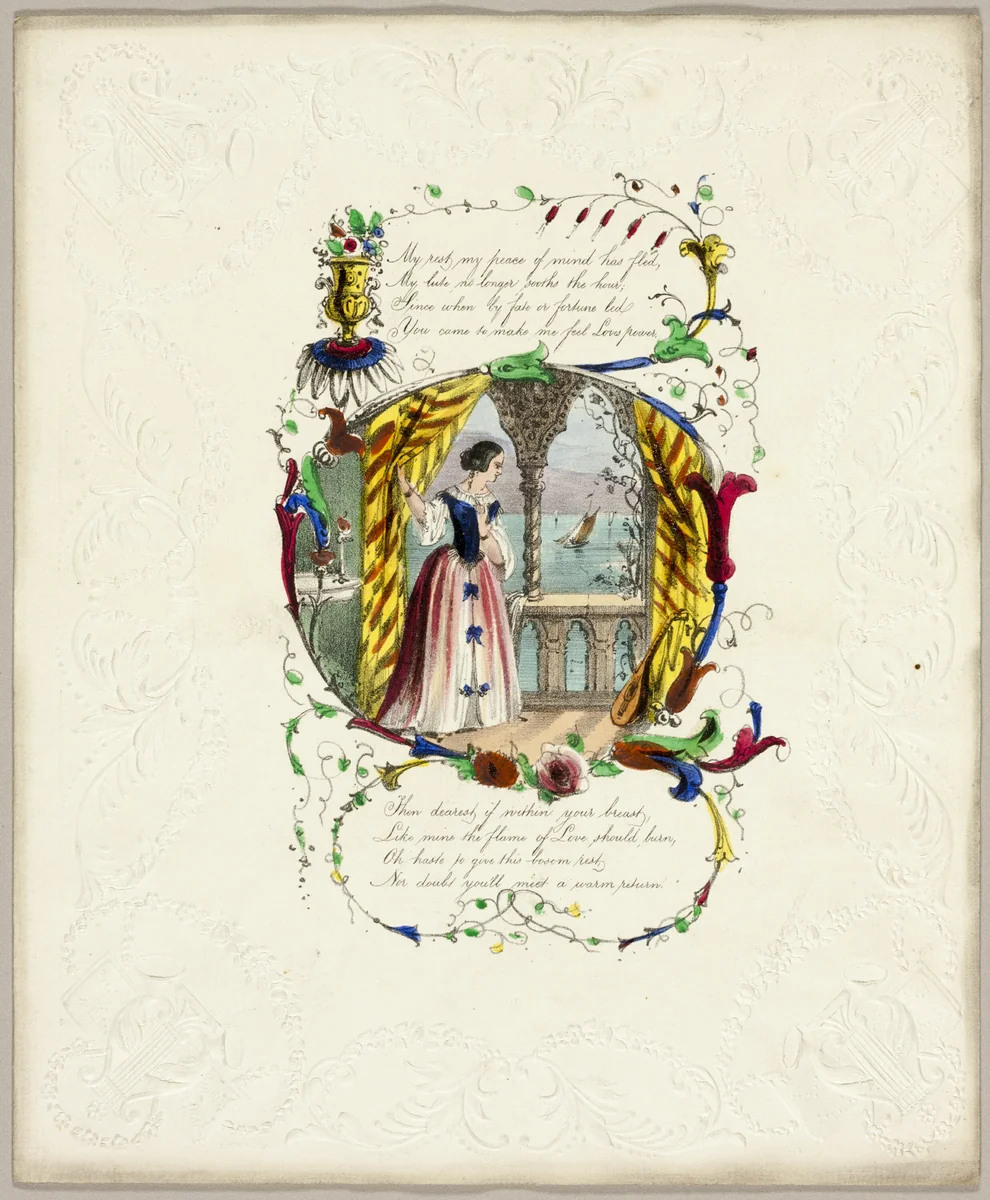 My rest, my peace of mind has fled,
My lute no longer sooths the hour;
Since when by fate or fortune led
You came to make me feel Loves power,
Then dearest if within your breast,
Like mine the flame of Love should burn,
Oh haste to give this bosom rest,
Nor doubt you'll meet a warm return.